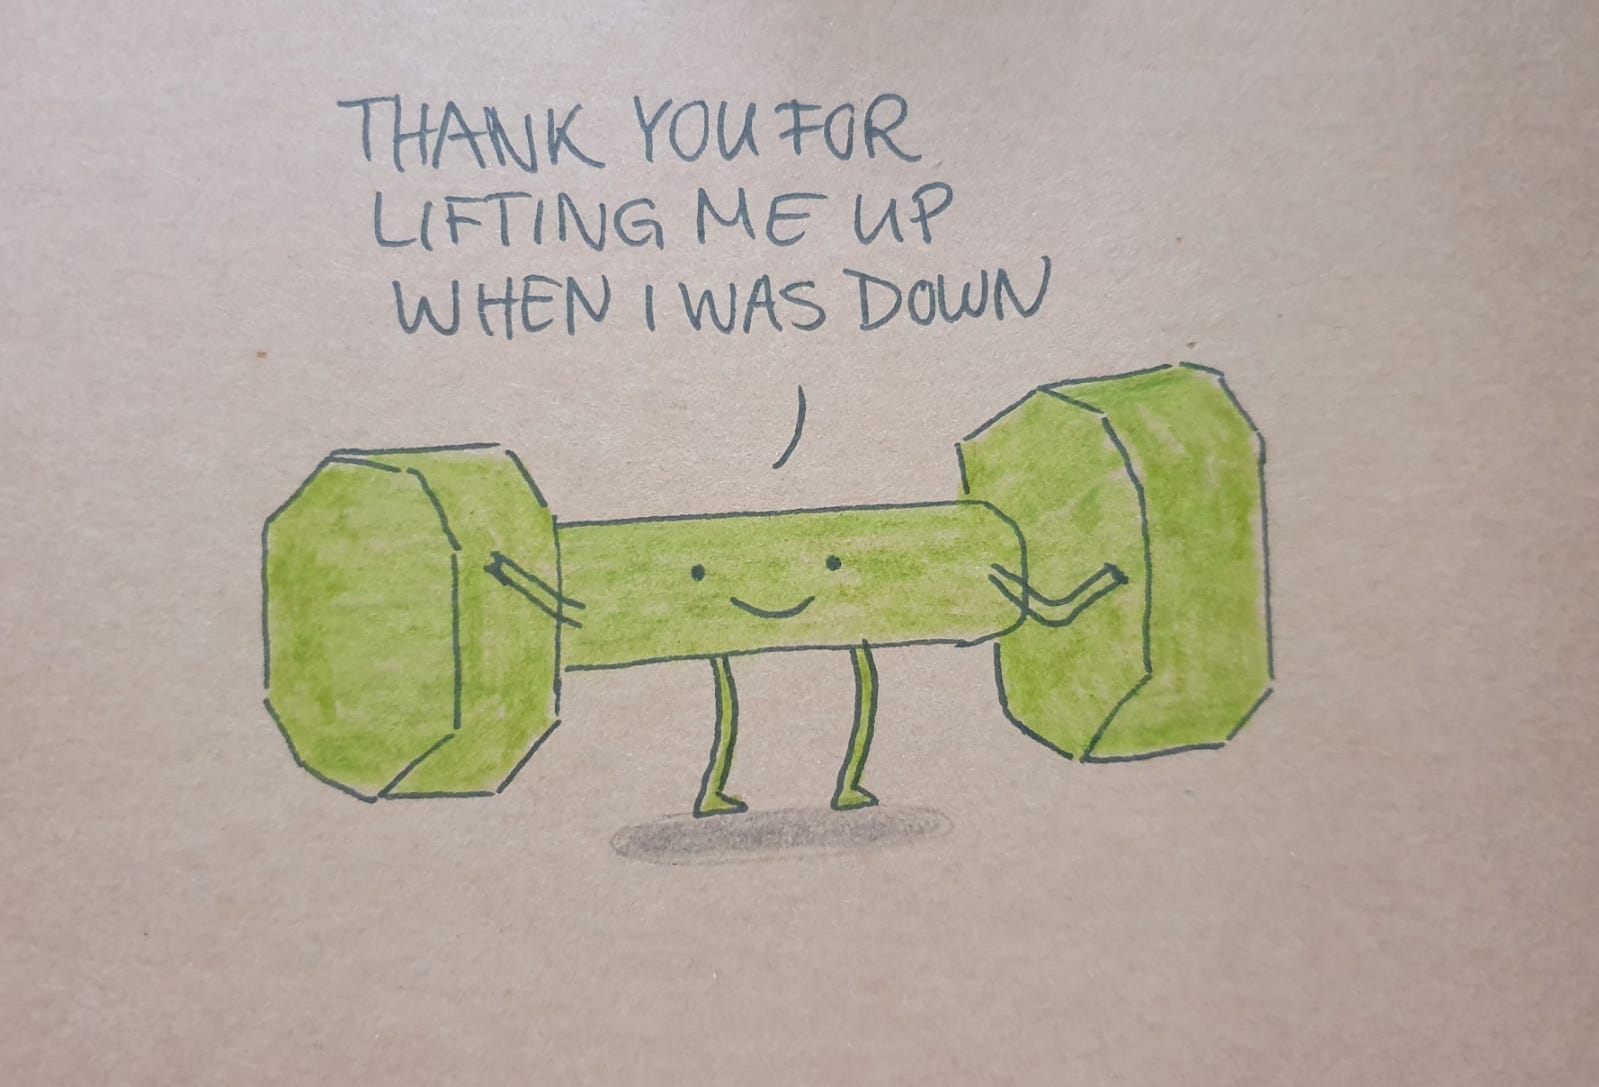 THANK YOU FOR
LIFTING ME UP
WHEN I WAS DOWN